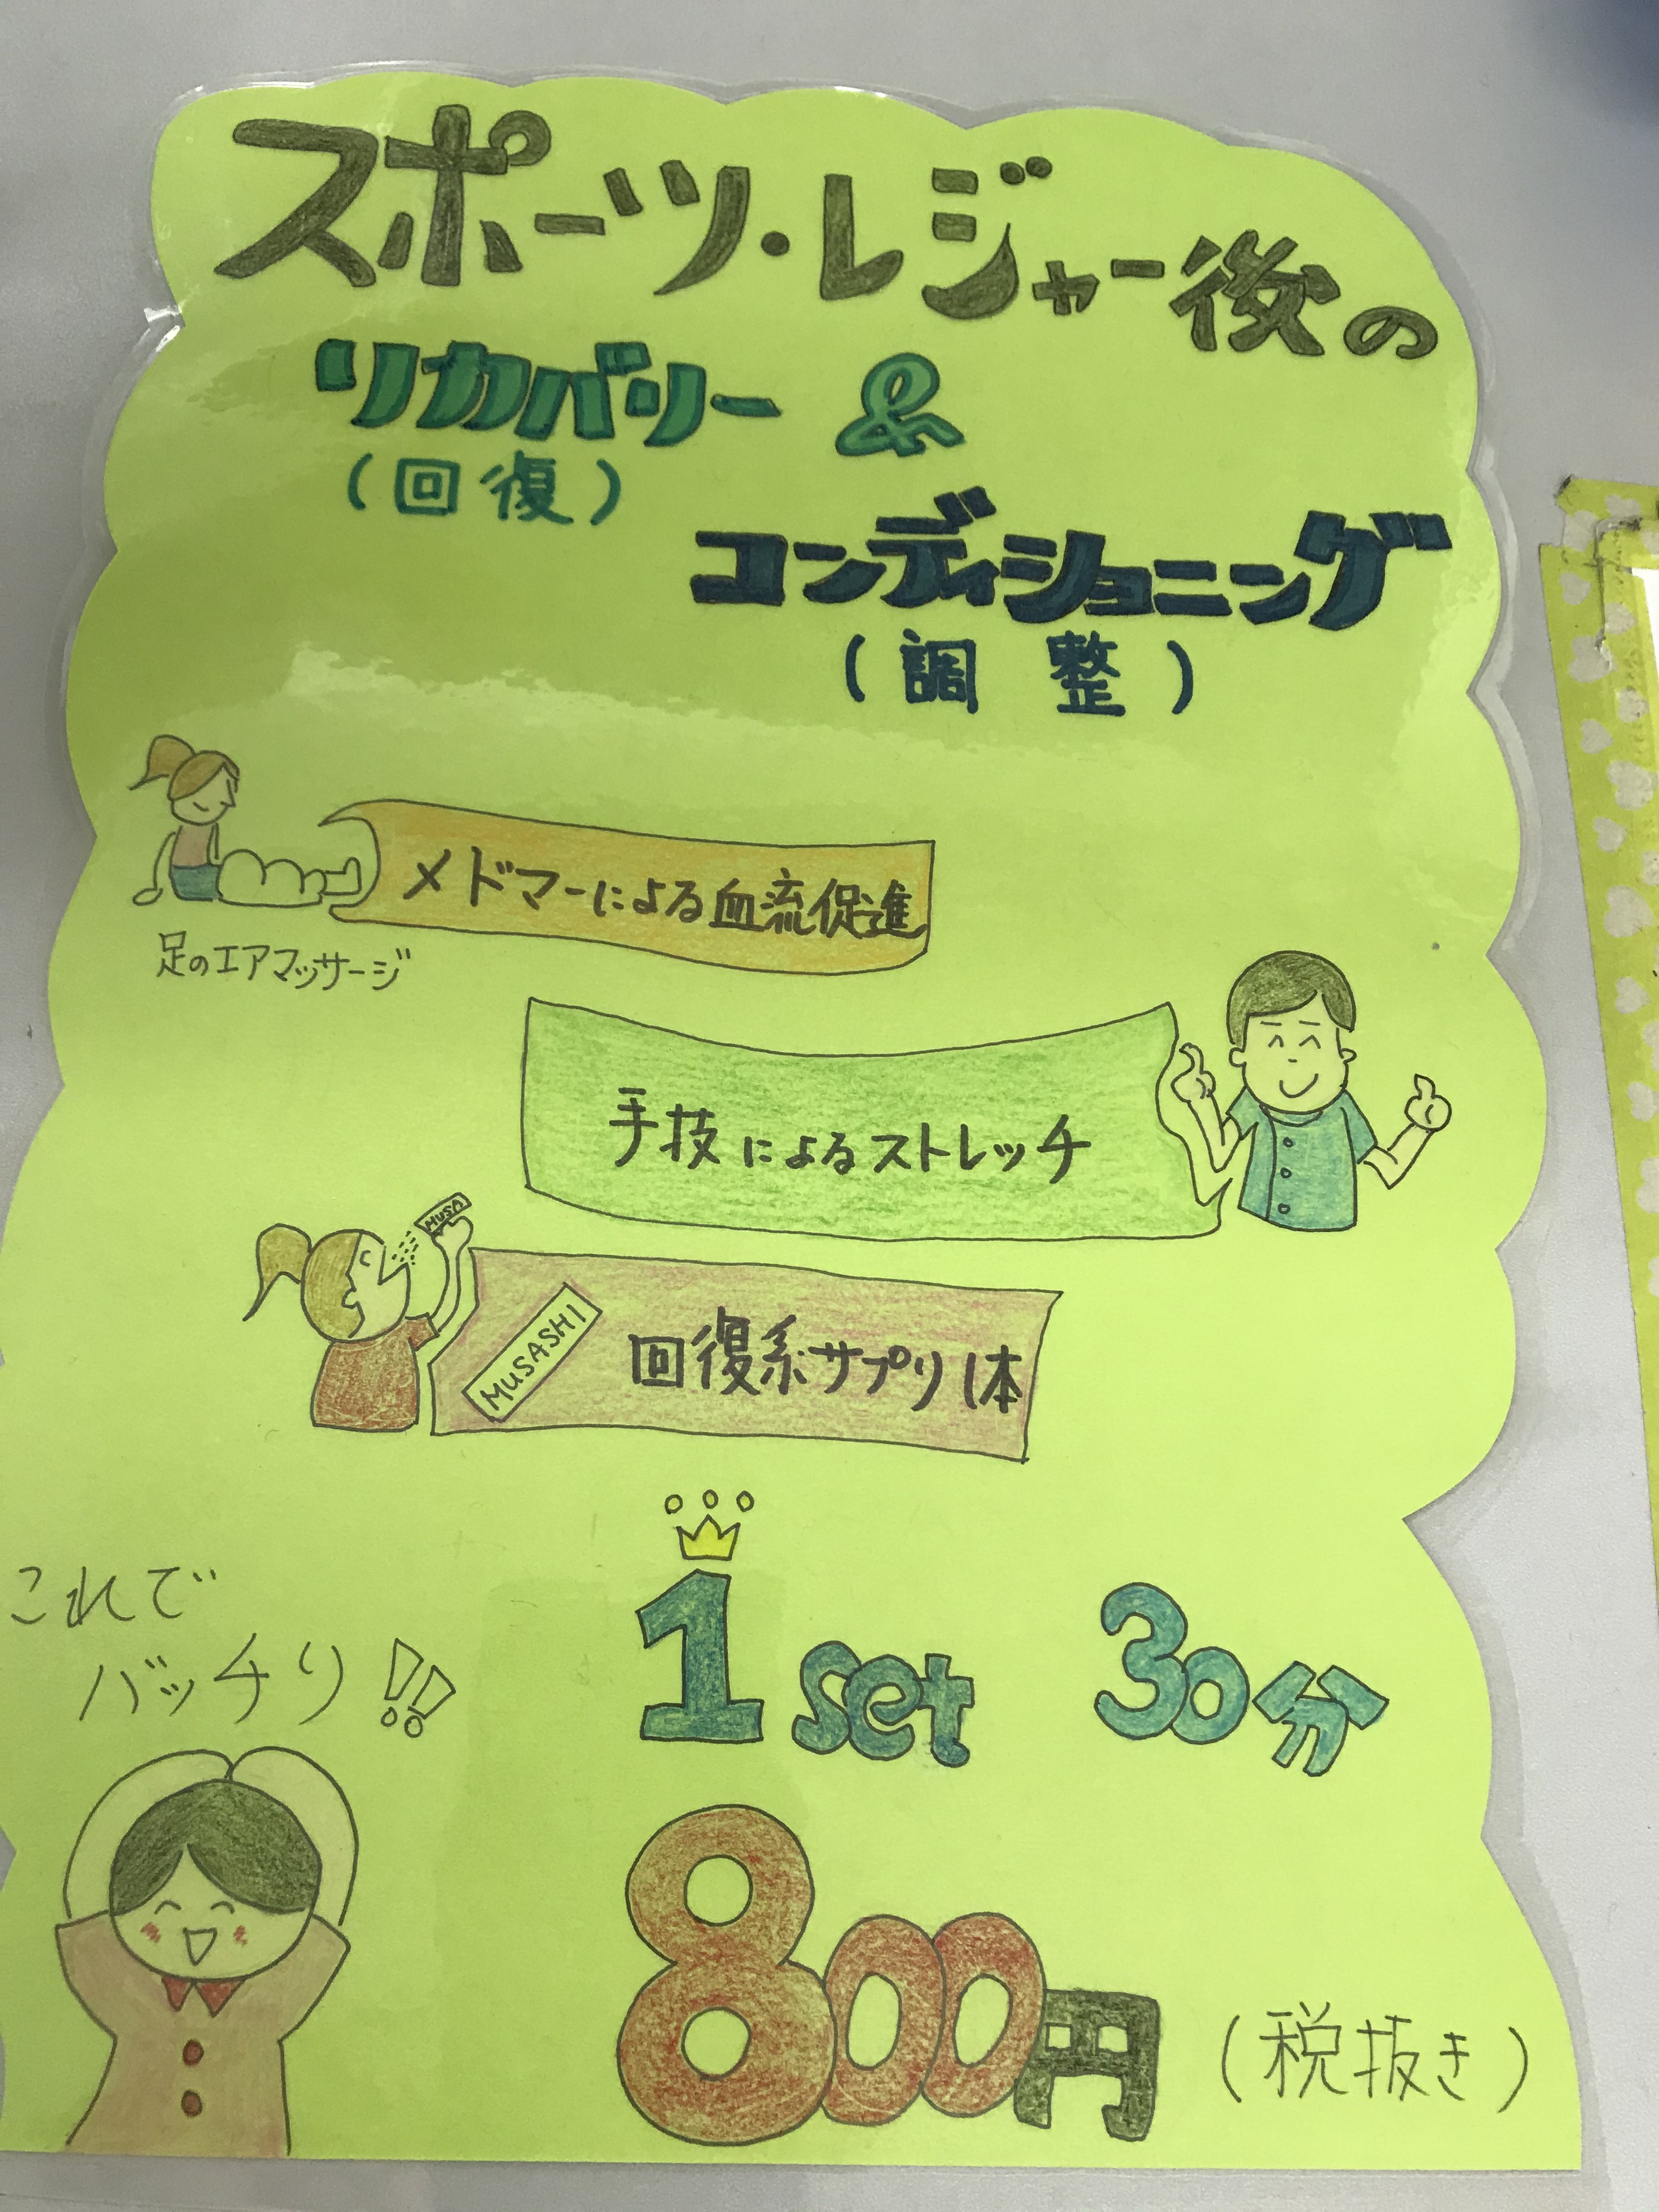 スポーツ・レジャー後の
リカバリー &
(回復)
コンディショニング
(調整)
メドマーによる血流促進
足のエアマッサージ
手技によるストレッチ
MUSA
MUSASHI
回復系サプリ1本
これで
バッチリ!!
1set 30分
800円 (税抜き)